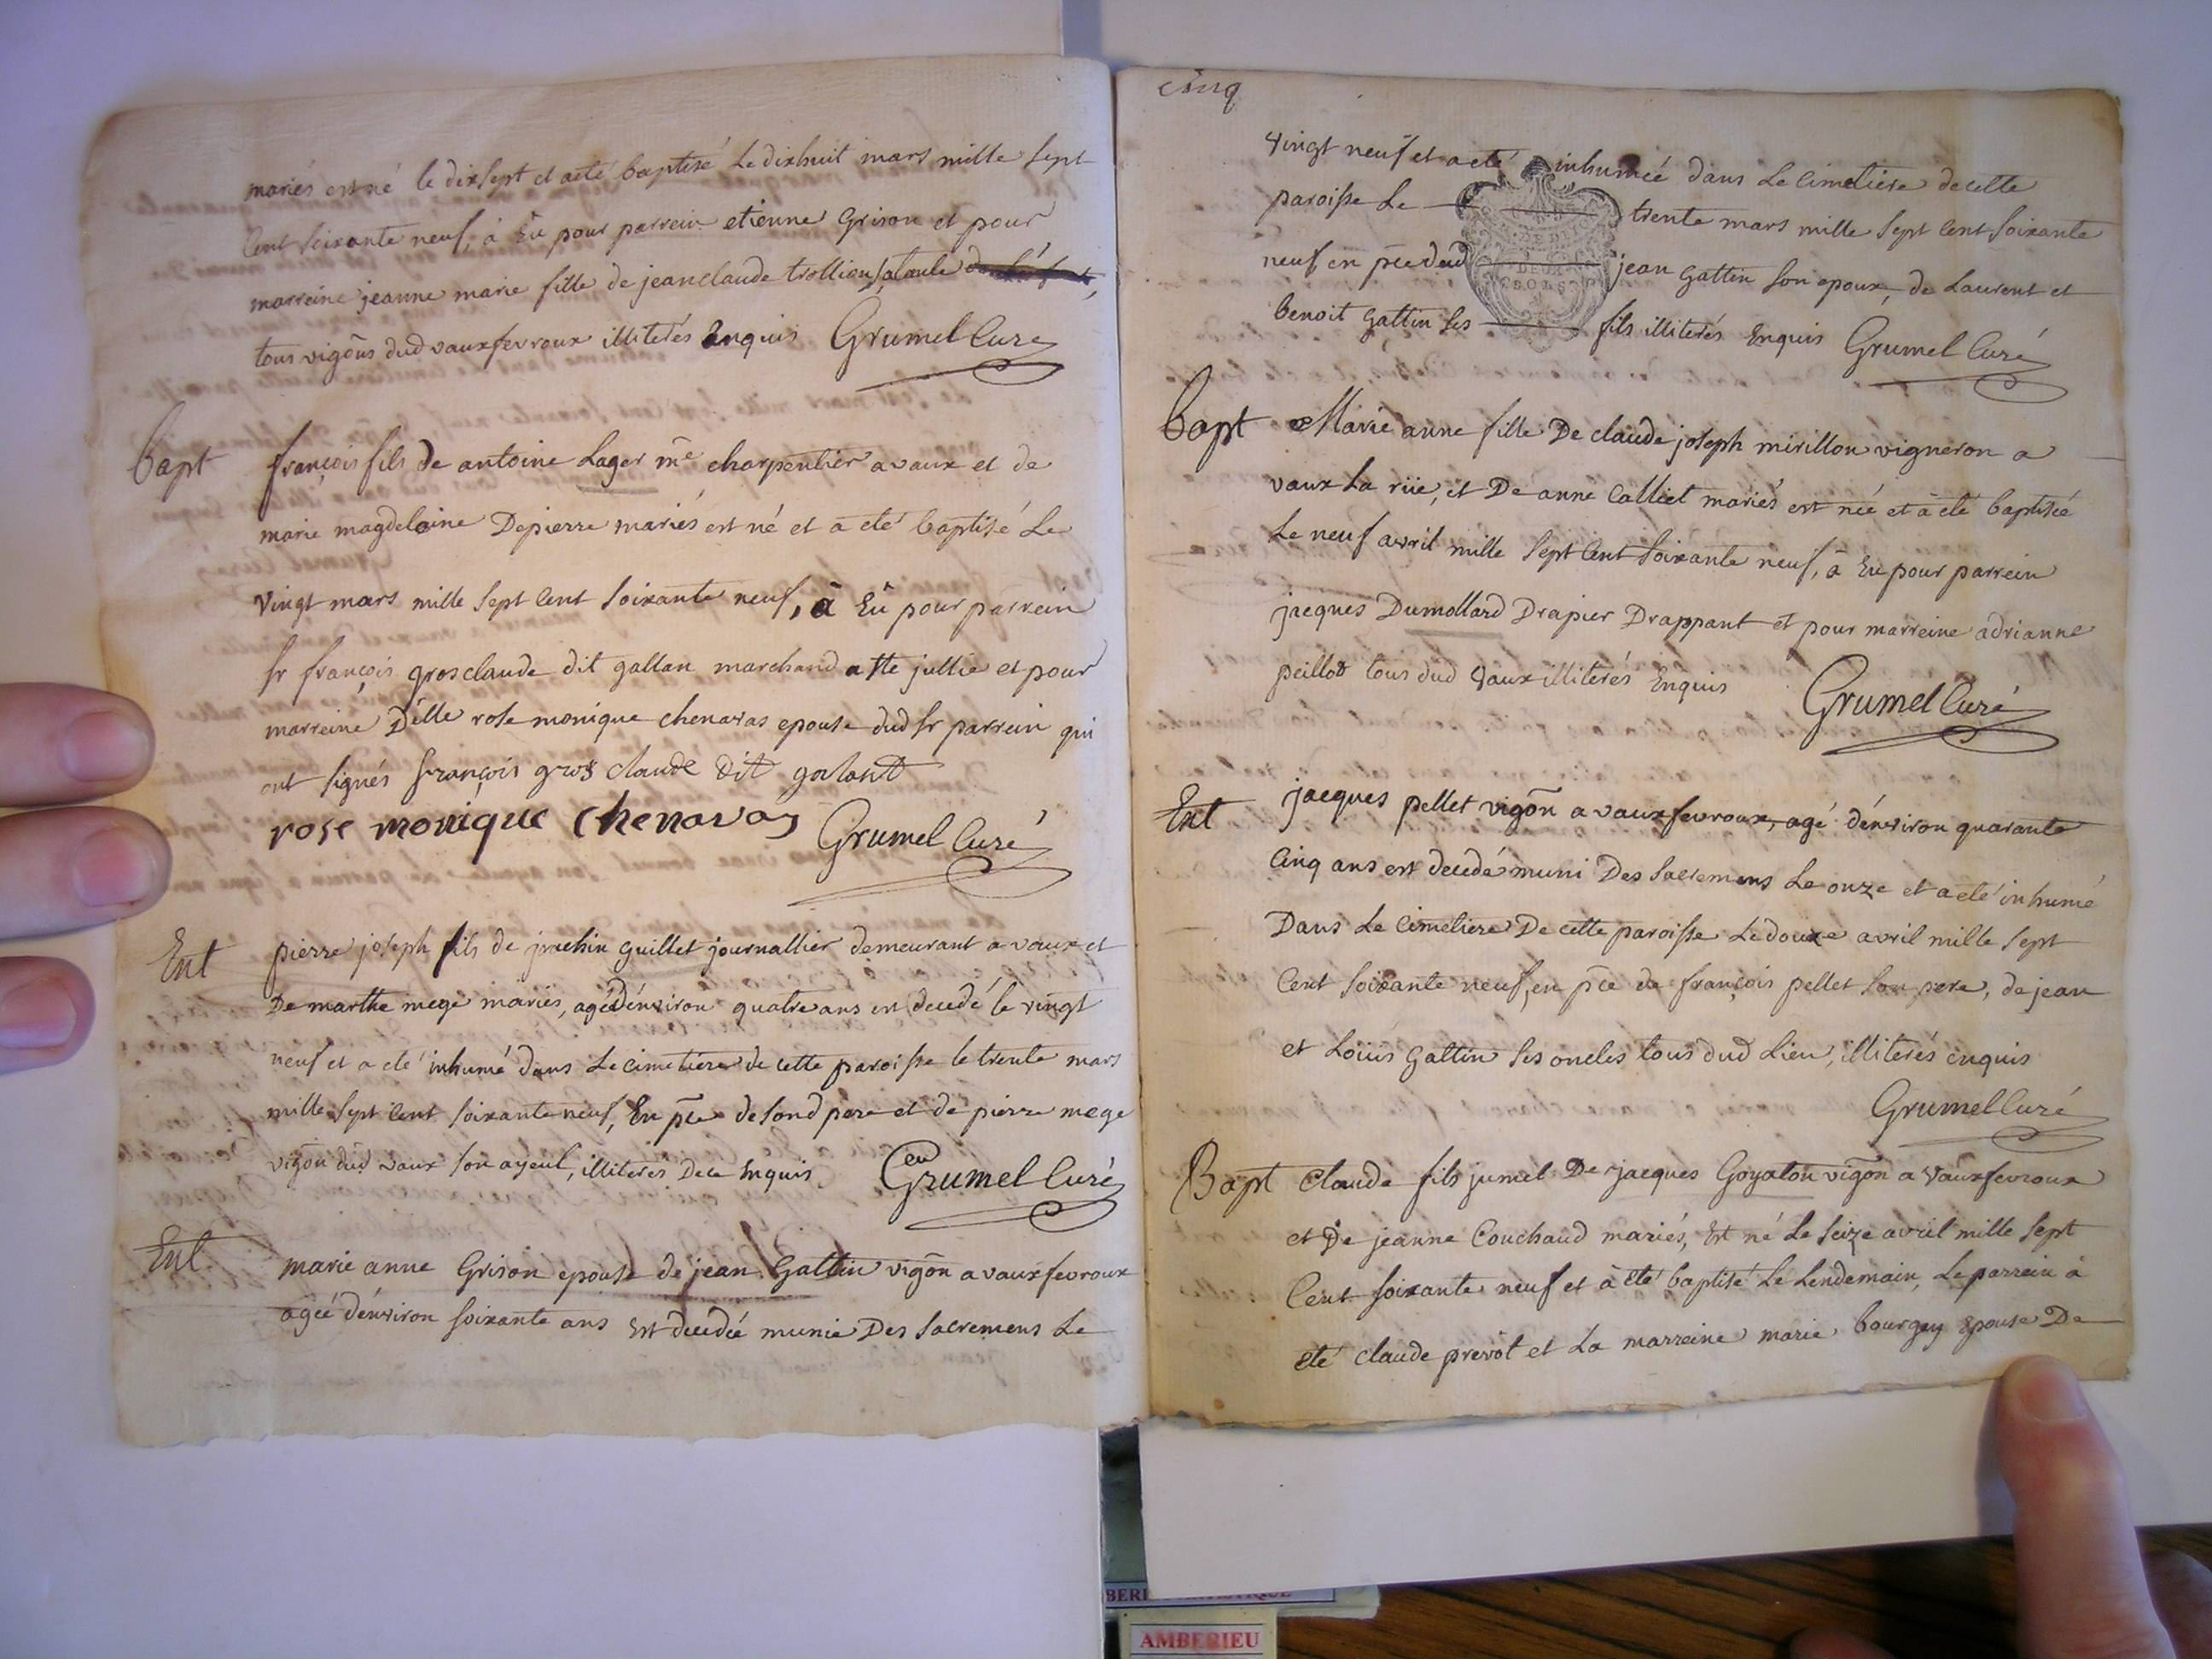 mariés est né le dixsept et a eté baptisé Le dixhuit mars mille sept
Cent soixante neuf, à Eû pour parrein etienne Grison et pour
marreine jeanne marie fille de jean claude trollion sa tante
tous vigõns dud vauxfevroux illiterés Enquis Grumel Curé
Bapt françois fils de antoine Lager me charpentier a vaux et de
marie magdelaine Depierre mariés est né et a eté baptisé Le
Vingt mars mille sept Cent soixante neuf, à Eû pour parrein
sr françois grosclaude dit gallan marchand a et pour
marreine Delle rose monique chenavas epouse dud sr parrein qui
ont signés françois gros claude Dit galant
rose monique Chenavas Grumel Curé
Ent pierre joseph fils de guillet journallier demeurant a vaux et
De marthe mege mariés, agé dénviron quatre ans est decedé le vingt
neuf et a eté inhumé dans Le cimetiere de cette paroisse le trente mars
mille sept Cent soixante neuf, En pce de sond pere et de pierre mege
vigõn dud vaux son ayeul, illiteres De ce Enquis Grumel Curé
Ent marie anne Grison epouse de jean Gattin vigõn a vauxfevroux
agée dénviron soixante ans est decedée munie Des sacremens Le
Cinq
Vingt neuf et a eté inhumée dans Le Cimetiere de cette
paroisse Le trente mars mille sept Cent soixante
neuf en pce dud jean Gattin son epoux, de Laurent et
benoit gattin ses fils illiterés Enquis Grumel Curé
DEUX
SOLS
Bapt Marie anne fille De claude joseph mirillon vigneron a
vaux La rüe, et De anne Calliet mariés est née et à eté baptisée
Le neuf avril mille sept Cent soixante neuf, à Eu pour parrein
jacques Dumollard Drapier Drappant et pour marreine adrianne
peillod tous dud Vaux illiterés Enquis Grumel Curé
Ent jacques pellet vigõn a vauxfevroux, agé dénviron quarante
Cinq ans est decedé muni Des Sacremens Le onze et a eté inhumé
Dans Le Cimetiere De cette paroisse Le douze avril mille sept
Cent soixante neuf, en pce de françois pellet son pere, de jean
et Loüis Gattin ses oncles tous dud Lieu, illiterés enquis
Grumel Curé
Bapt Claude fils jumel De jacques Goyaton vigõn a Vauxfevroux
et De jeanne Couchaud mariés, Est né Le seize avril mille sept
Cent soixante neuf et à eté baptisé Le Lendemain, Le parrein à
eté claude prevôt et La marreine marie bourgey Epouse De
AMBERIEU